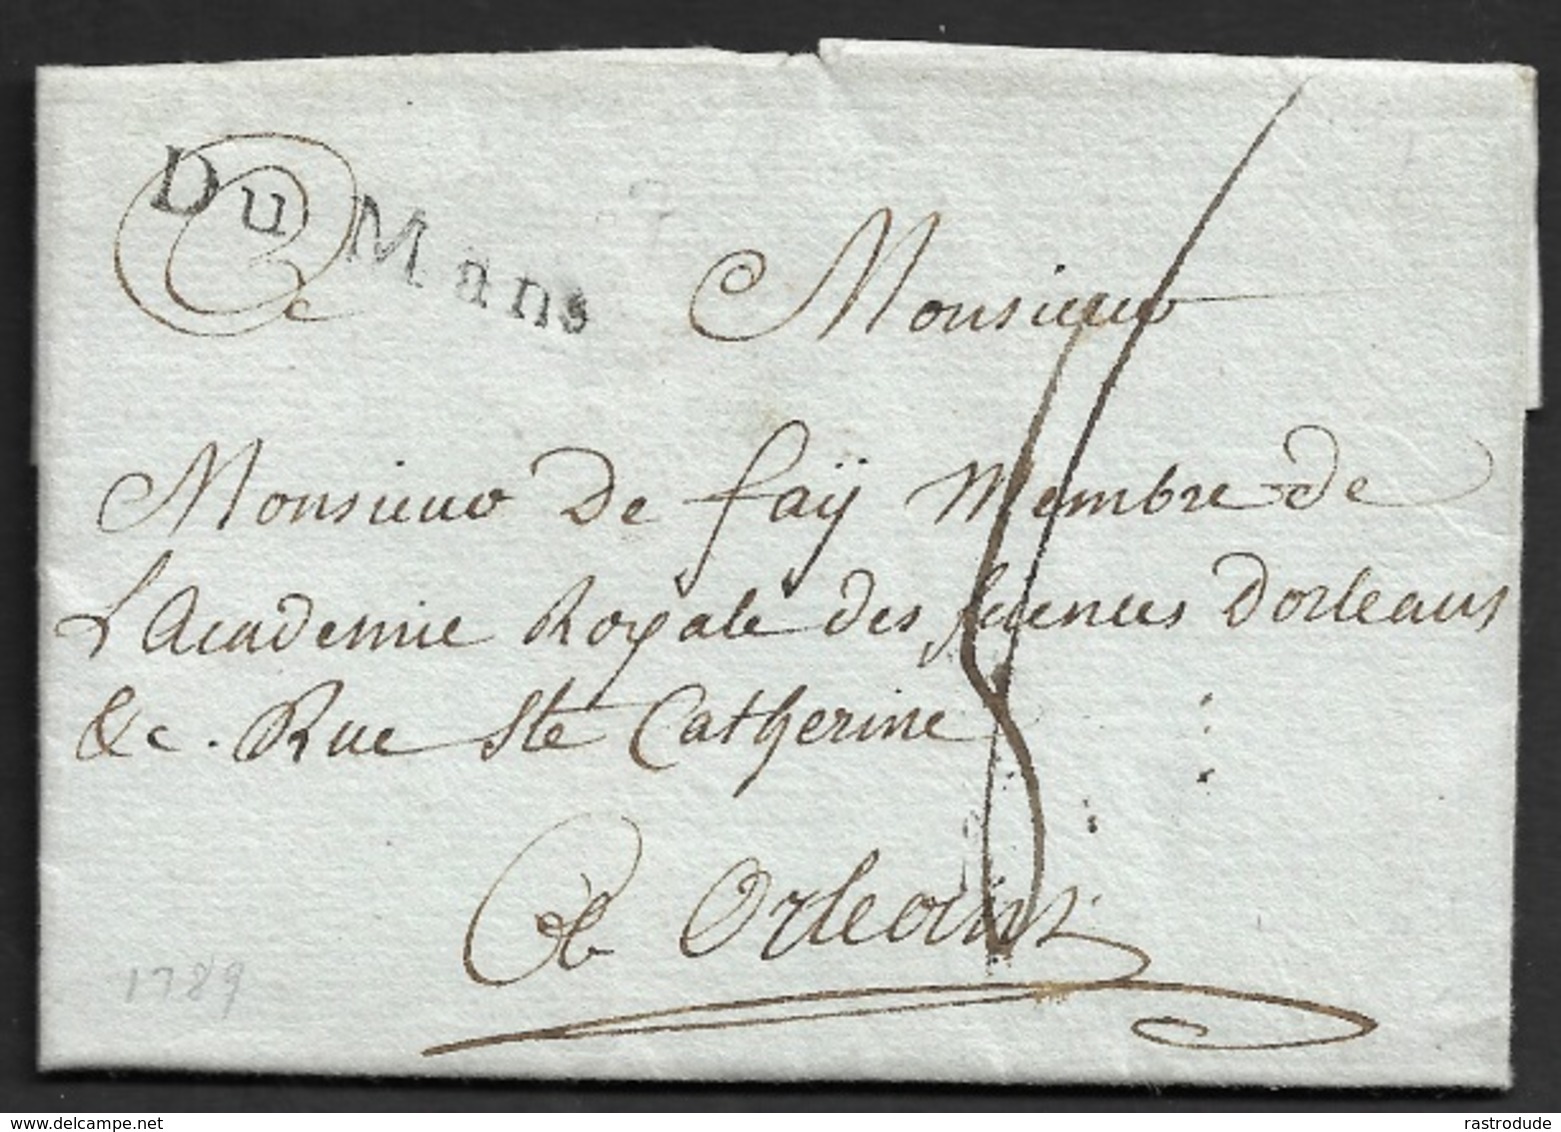 Du Mans
Monsieur
Monsieur De faÿ Membre de
L'academie Royale des sciences Dorleans
&c. Rue Ste Catherine
8
A Orleans
1789
delcampe.net
rastrodude